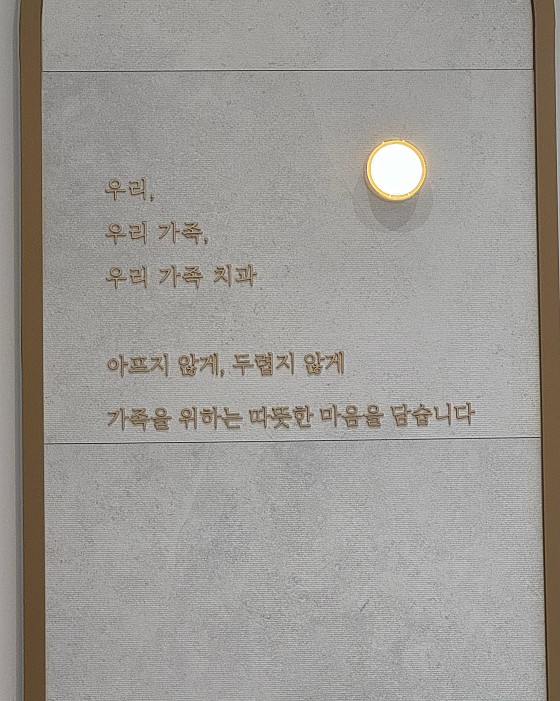 우리,
우리 가족,
우리 가족 치과
아프지 않게, 두렵지 않게
가족을 위하는 따뜻한 마음을 담습니다